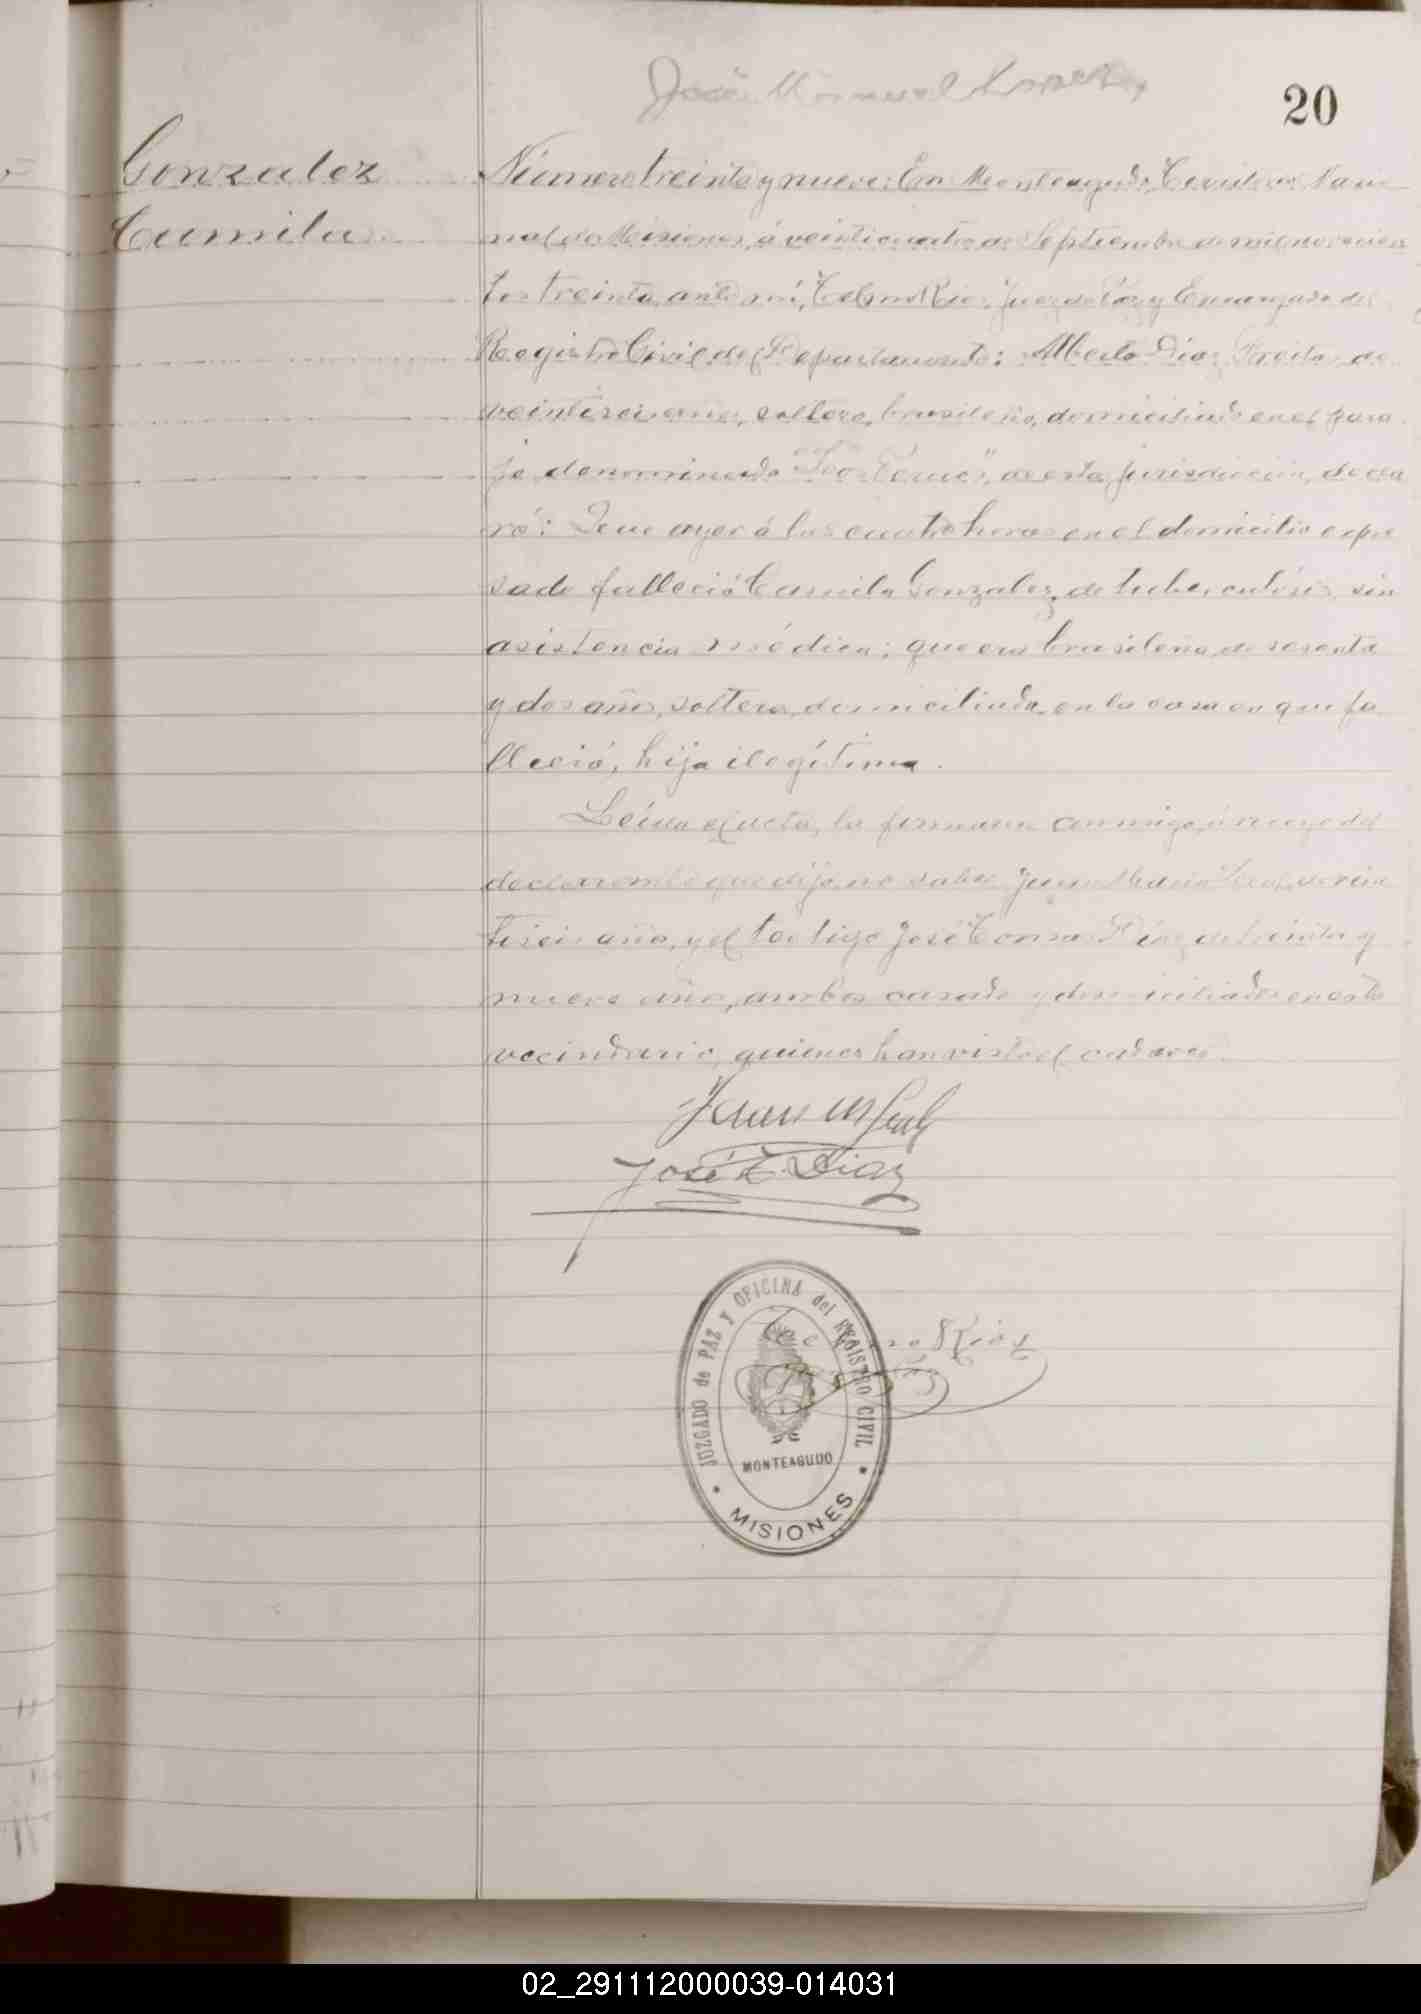 José Manuel
20
Gonzalez
Camila
Número treinta y nueve: En Monteagudo, Territorio Nacio
nal de Misiones, á veinticuatro de Septiembre de mil novecien
tos treinta, ante mí, Rios, Juez de Paz y Encargado del
Registro Civil del Departamento: Alberto Díaz Freitas, de
veintiseis años, soltero, brasileño, domiciliado en el para
je denominado de esta jurisdicción, decla
ró: Que ayer á las cuatro horas en el domicilio expre
sado falleció Camila Gonzalez, de tuberculósis, sin
asistencia médica; que era brasileña, de sesenta
y dos años, soltera, domiciliada en la casa en que fa
lleció, hija ilegítima.
Leída el acta, la firmaron conmigo, á ruego del
declarante que dijo no saber Juan María Leal, de vein
tiseis años, y el testigo José Díaz, de treinta y
nueve años, ambos casados y domiciliados en este
vecindario, quienes han visto el cadaver.
Juan M Leal
José T. Diaz
Rios
JUZGADO de PAZ y OFICINA del REGISTRO CIVIL
MONTEAGUDO
• MISIONES •
02_291112000039-014031